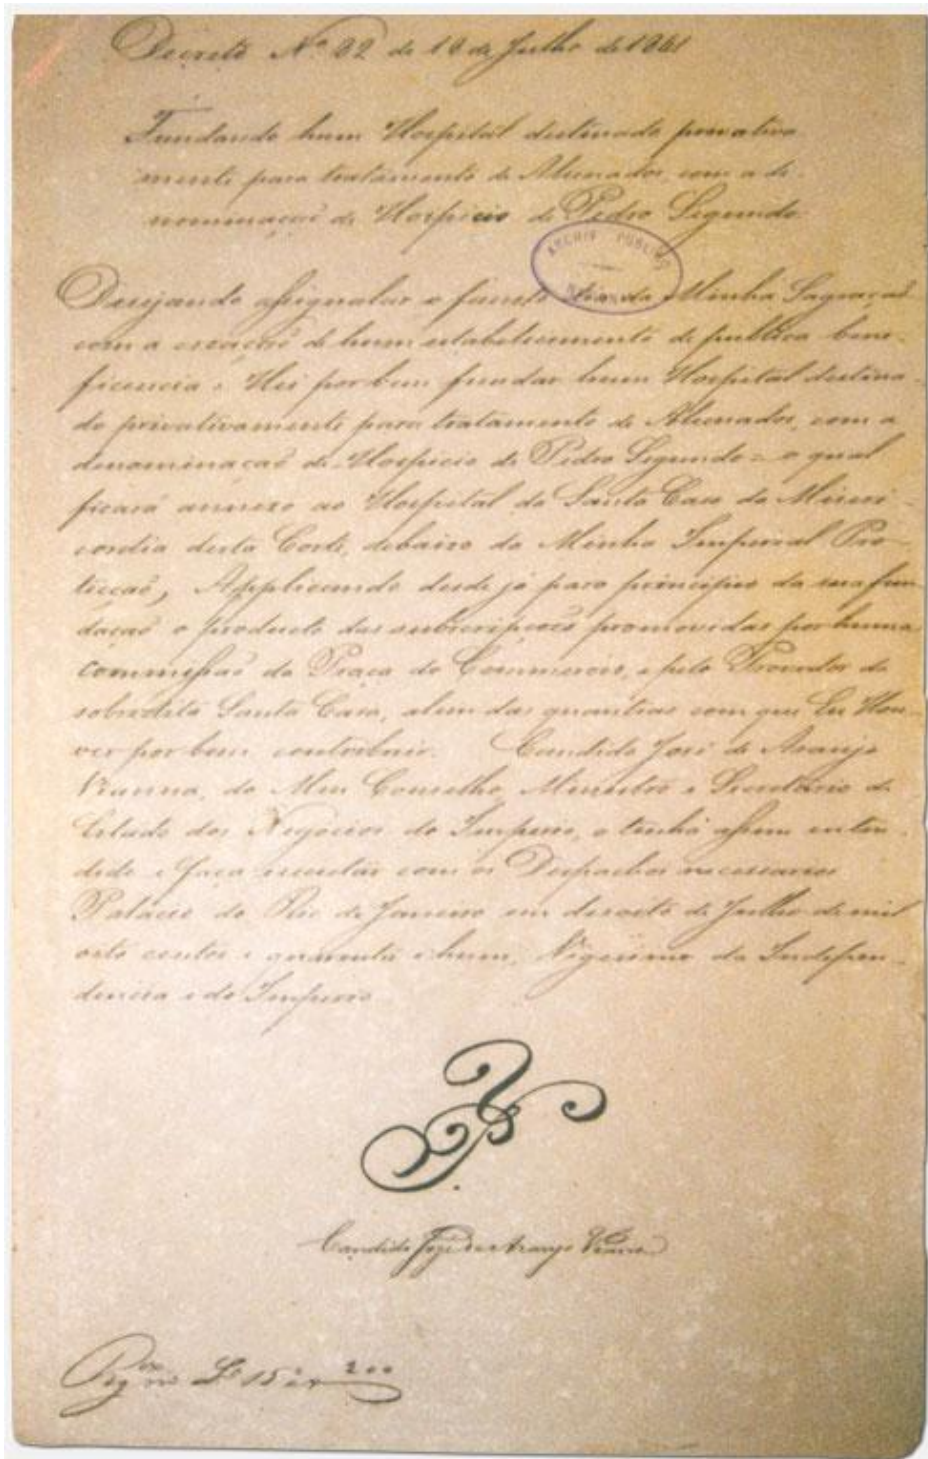 Decreto Nº 82 de 18 de Julho de 1841
Fundando hum Hospital destinado privativa
mente para tratamento de Alienados, com a de-
nominação de Hospicio de Pedro Segundo.
ARCHIVO PUBLICO
Desejando assignalar o fausto dia da Minha Sagração
com a creação de hum estabelecimento de publica bene-
ficencia: Hei por bem fundar hum Hospital destina-
do privativamente para tratamento de Alienados, com a
denominação de = Hospicio de Pedro Segundo = o qual
ficará annexo ao Hospital da Santa Casa da Miseri-
cordia desta Corte, debaixo da Minha Imperial Pro-
tecção, Applicando desde já para principio da sua fun-
dação o producto das subscripções promovidas por huma
commissão da Praça do Commercio, e pelo Provedor da
sobredita Santa Casa, alem das quantias com que Eu Hou-
ver por bem contribuir. Candido José de Araujo
Vianna, do Meu Conselho, Ministro e Secretario de
Estado dos Negocios do Imperio, o tenha assim enten-
dido e faça executar com os Despachos necessarios
Palacio do Rio de Janeiro em desoito de Julho de mil
oito centos e quarenta e hum, Vigesimo da Indepen-
dencia e do Imperio
Candido José de Araujo Vianna
Lº 15